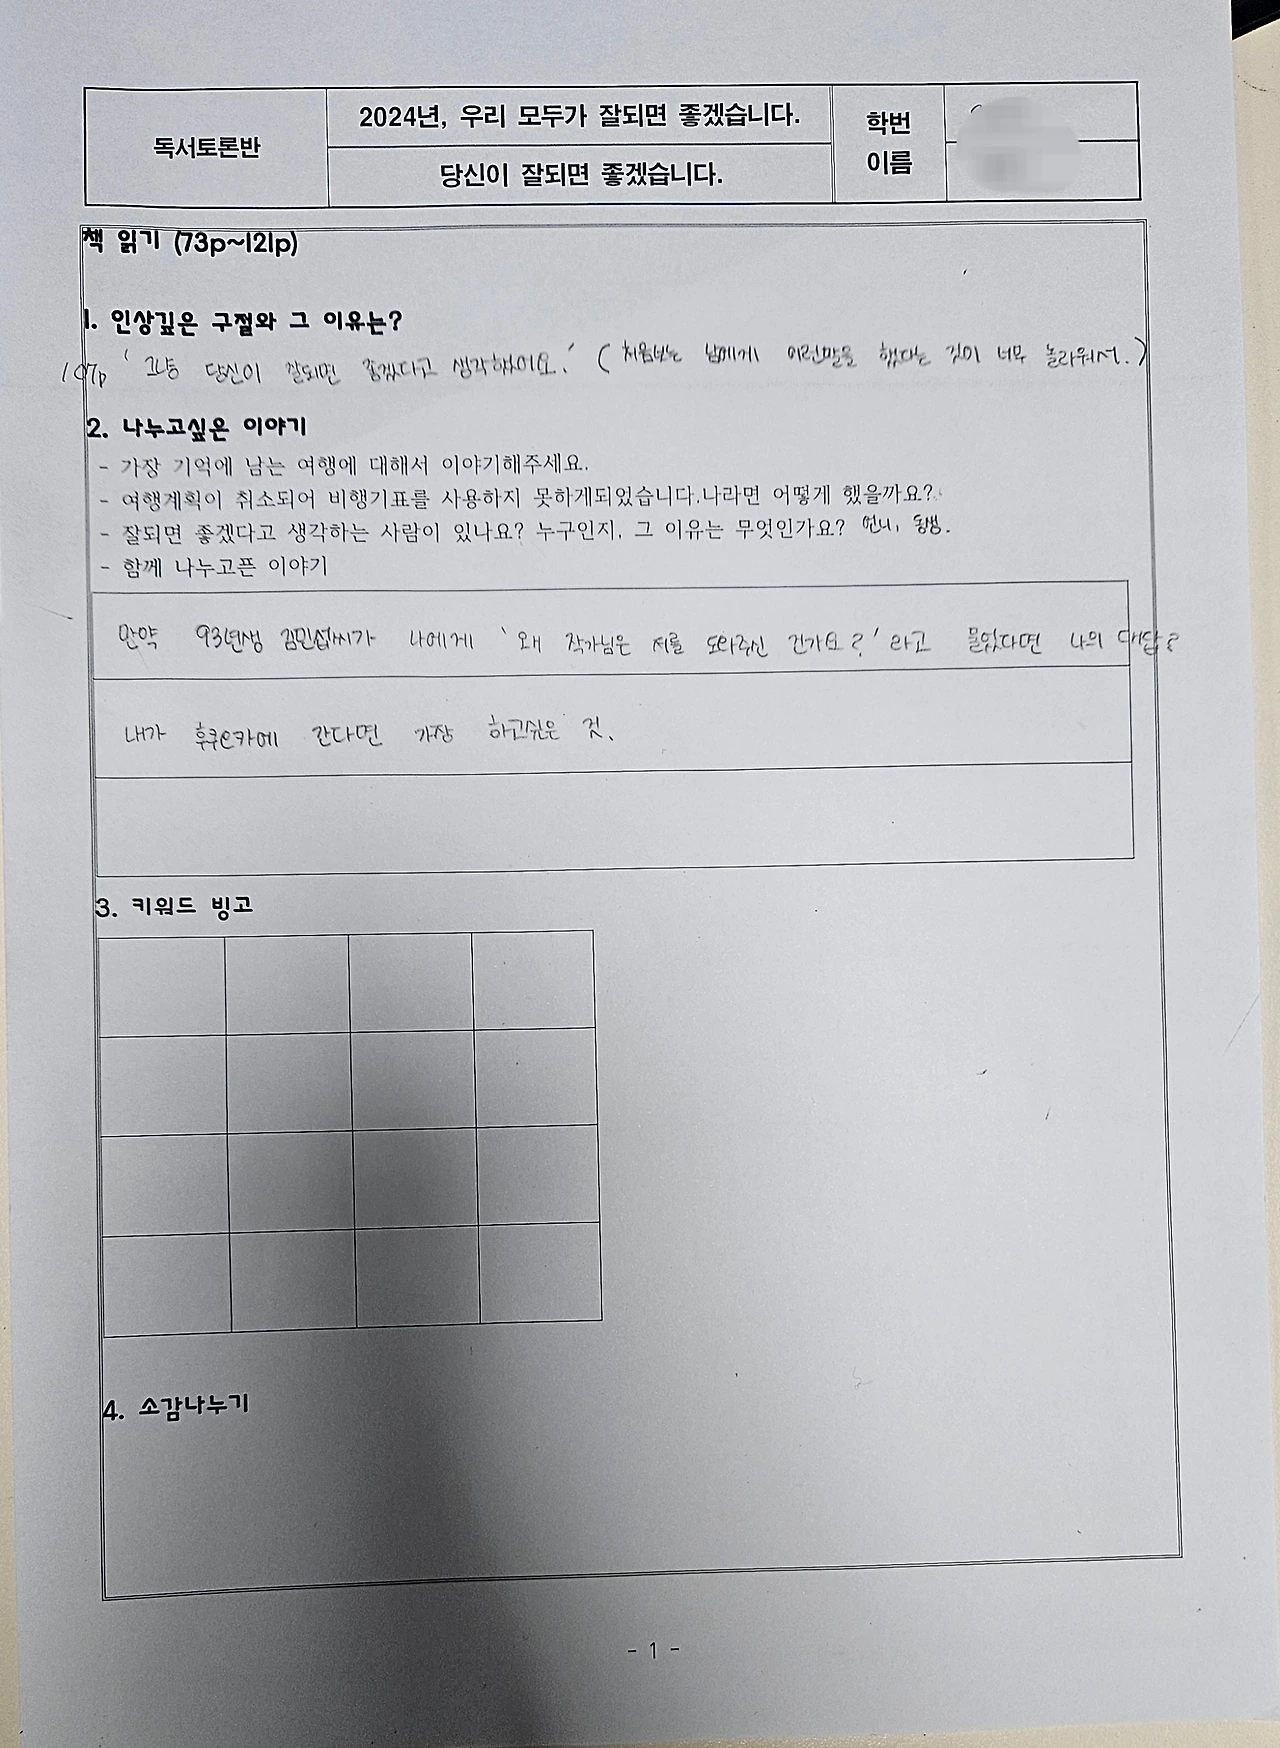 독서토론반
2024년, 우리 모두가 잘되면 좋겠습니다.
당신이 잘되면 좋겠습니다.
학번
이름
책 읽기 (73p~121p)
1. 인상깊은 구절와 그 이유는?
107p '그냥 당신이 잘되면 좋겠다고 생각했어요.' (처음보는 남에게 이런말을 했다는 것이 너무 놀라워서.)
2. 나누고싶은 이야기
- 가장 기억에 남는 여행에 대해서 이야기해주세요.
- 여행계획이 취소되어 비행기표를 사용하지 못하게되었습니다.나라면 어떻게 했을까요?
- 잘되면 좋겠다고 생각하는 사람이 있나요? 누구인지, 그 이유는 무엇인가요? 언니, 동생.
- 함께 나누고픈 이야기
만약 93년생 김민섭씨가 나에게 '왜 작가님은 저를 도와주신 건가요?' 라고 물었다면 나의 대답?
내가 후쿠오카에 간다면 가장 하고싶은 것.
3. 키워드 빙고
4. 소감나누기
- 1 -